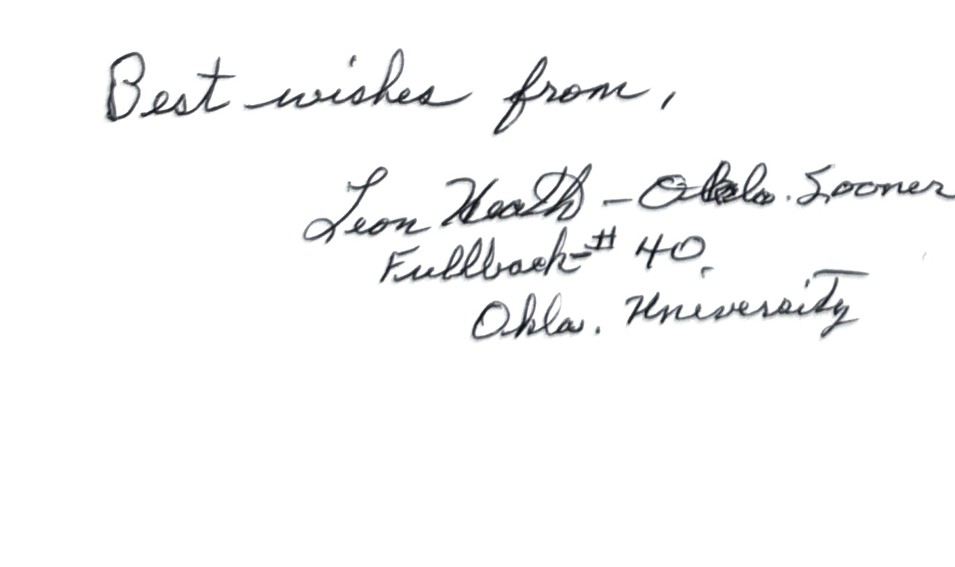 Best wishes from,
Leon Heath - Okla. Sooner
Fullback - # 40.
Okla. University